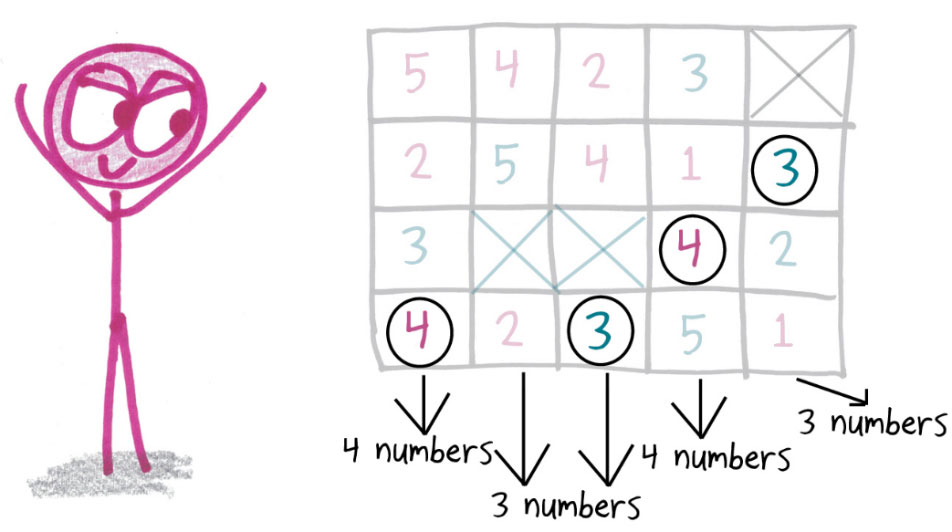 5 4 2 3
2 5 4 1 3
3 4 2
4 2 3 5 1
3 numbers
4 numbers
4 numbers
3 numbers